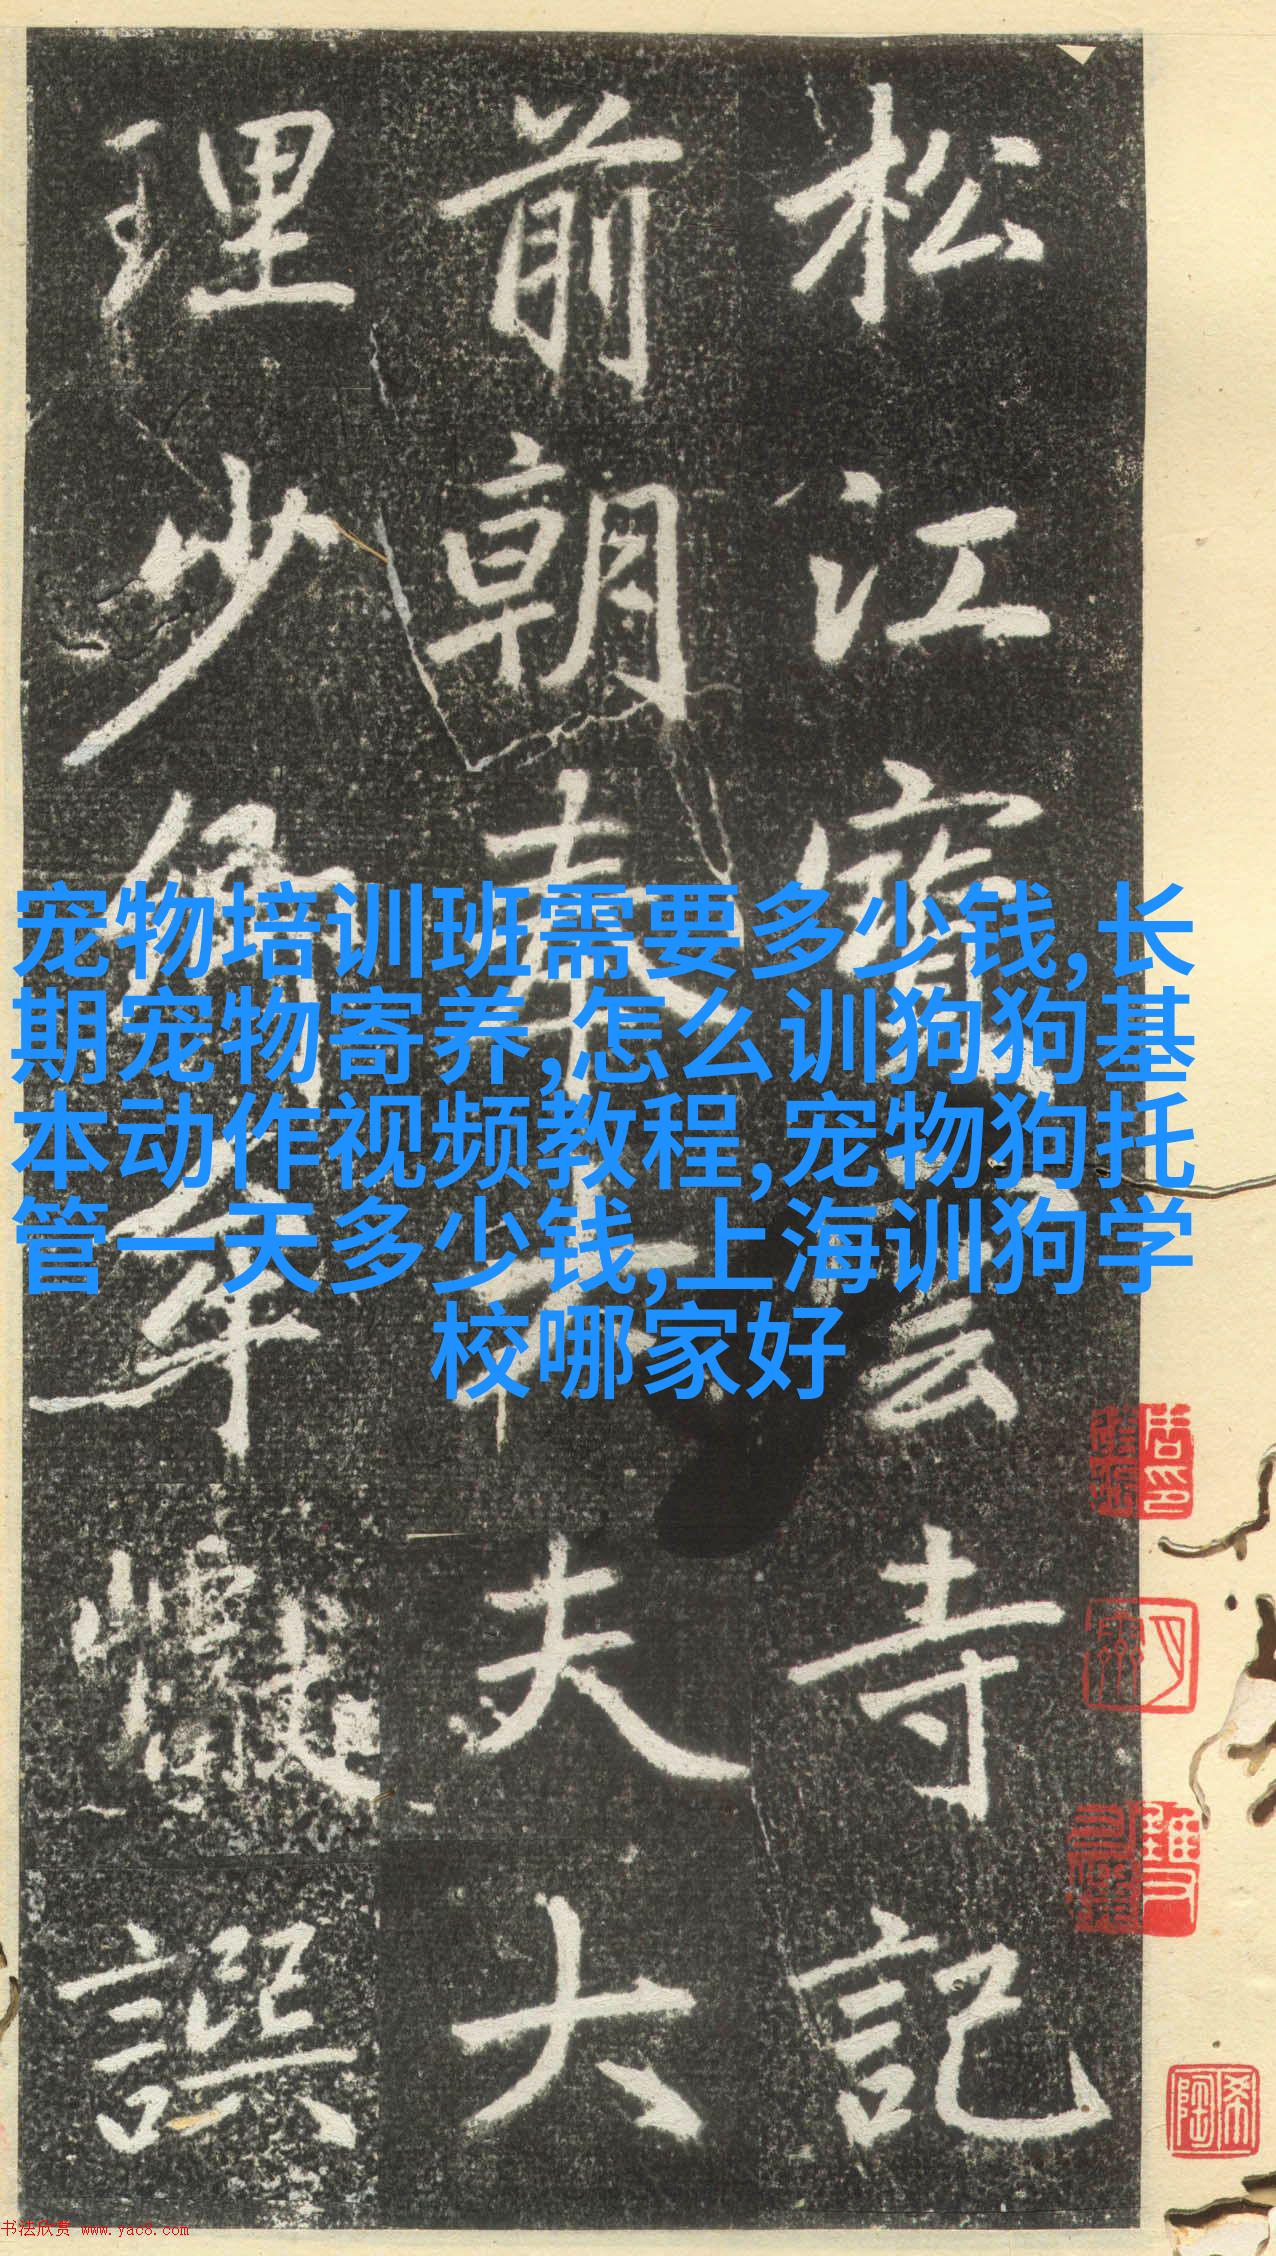 松江寶雲寺記
前朝奉大夫大
理少卿牟巘譔
宠物培训班需要多少钱,长
期宠物寄养,怎么训狗狗基
本动作视频教程,宠物狗托
管一天多少钱,上海训狗学
校哪家好
希陶
书法欣赏 www.yac8.com